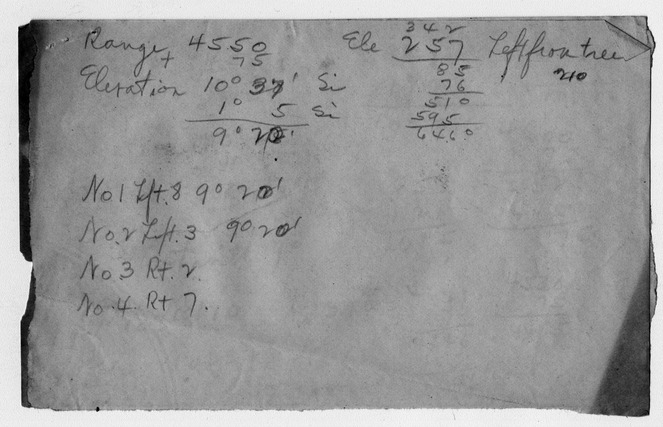 Range 4550
+ 75
Elevation 10° 37' Si
1° 5 Si
9° 20'
No 1 Left. 8 9° 20'
No. 2 Left. 3 9° 20'
No 3 Rt. 2.
No. 4. Rt 7.
342
Ele 257 Left from tree
210
85
76
510
595
6460